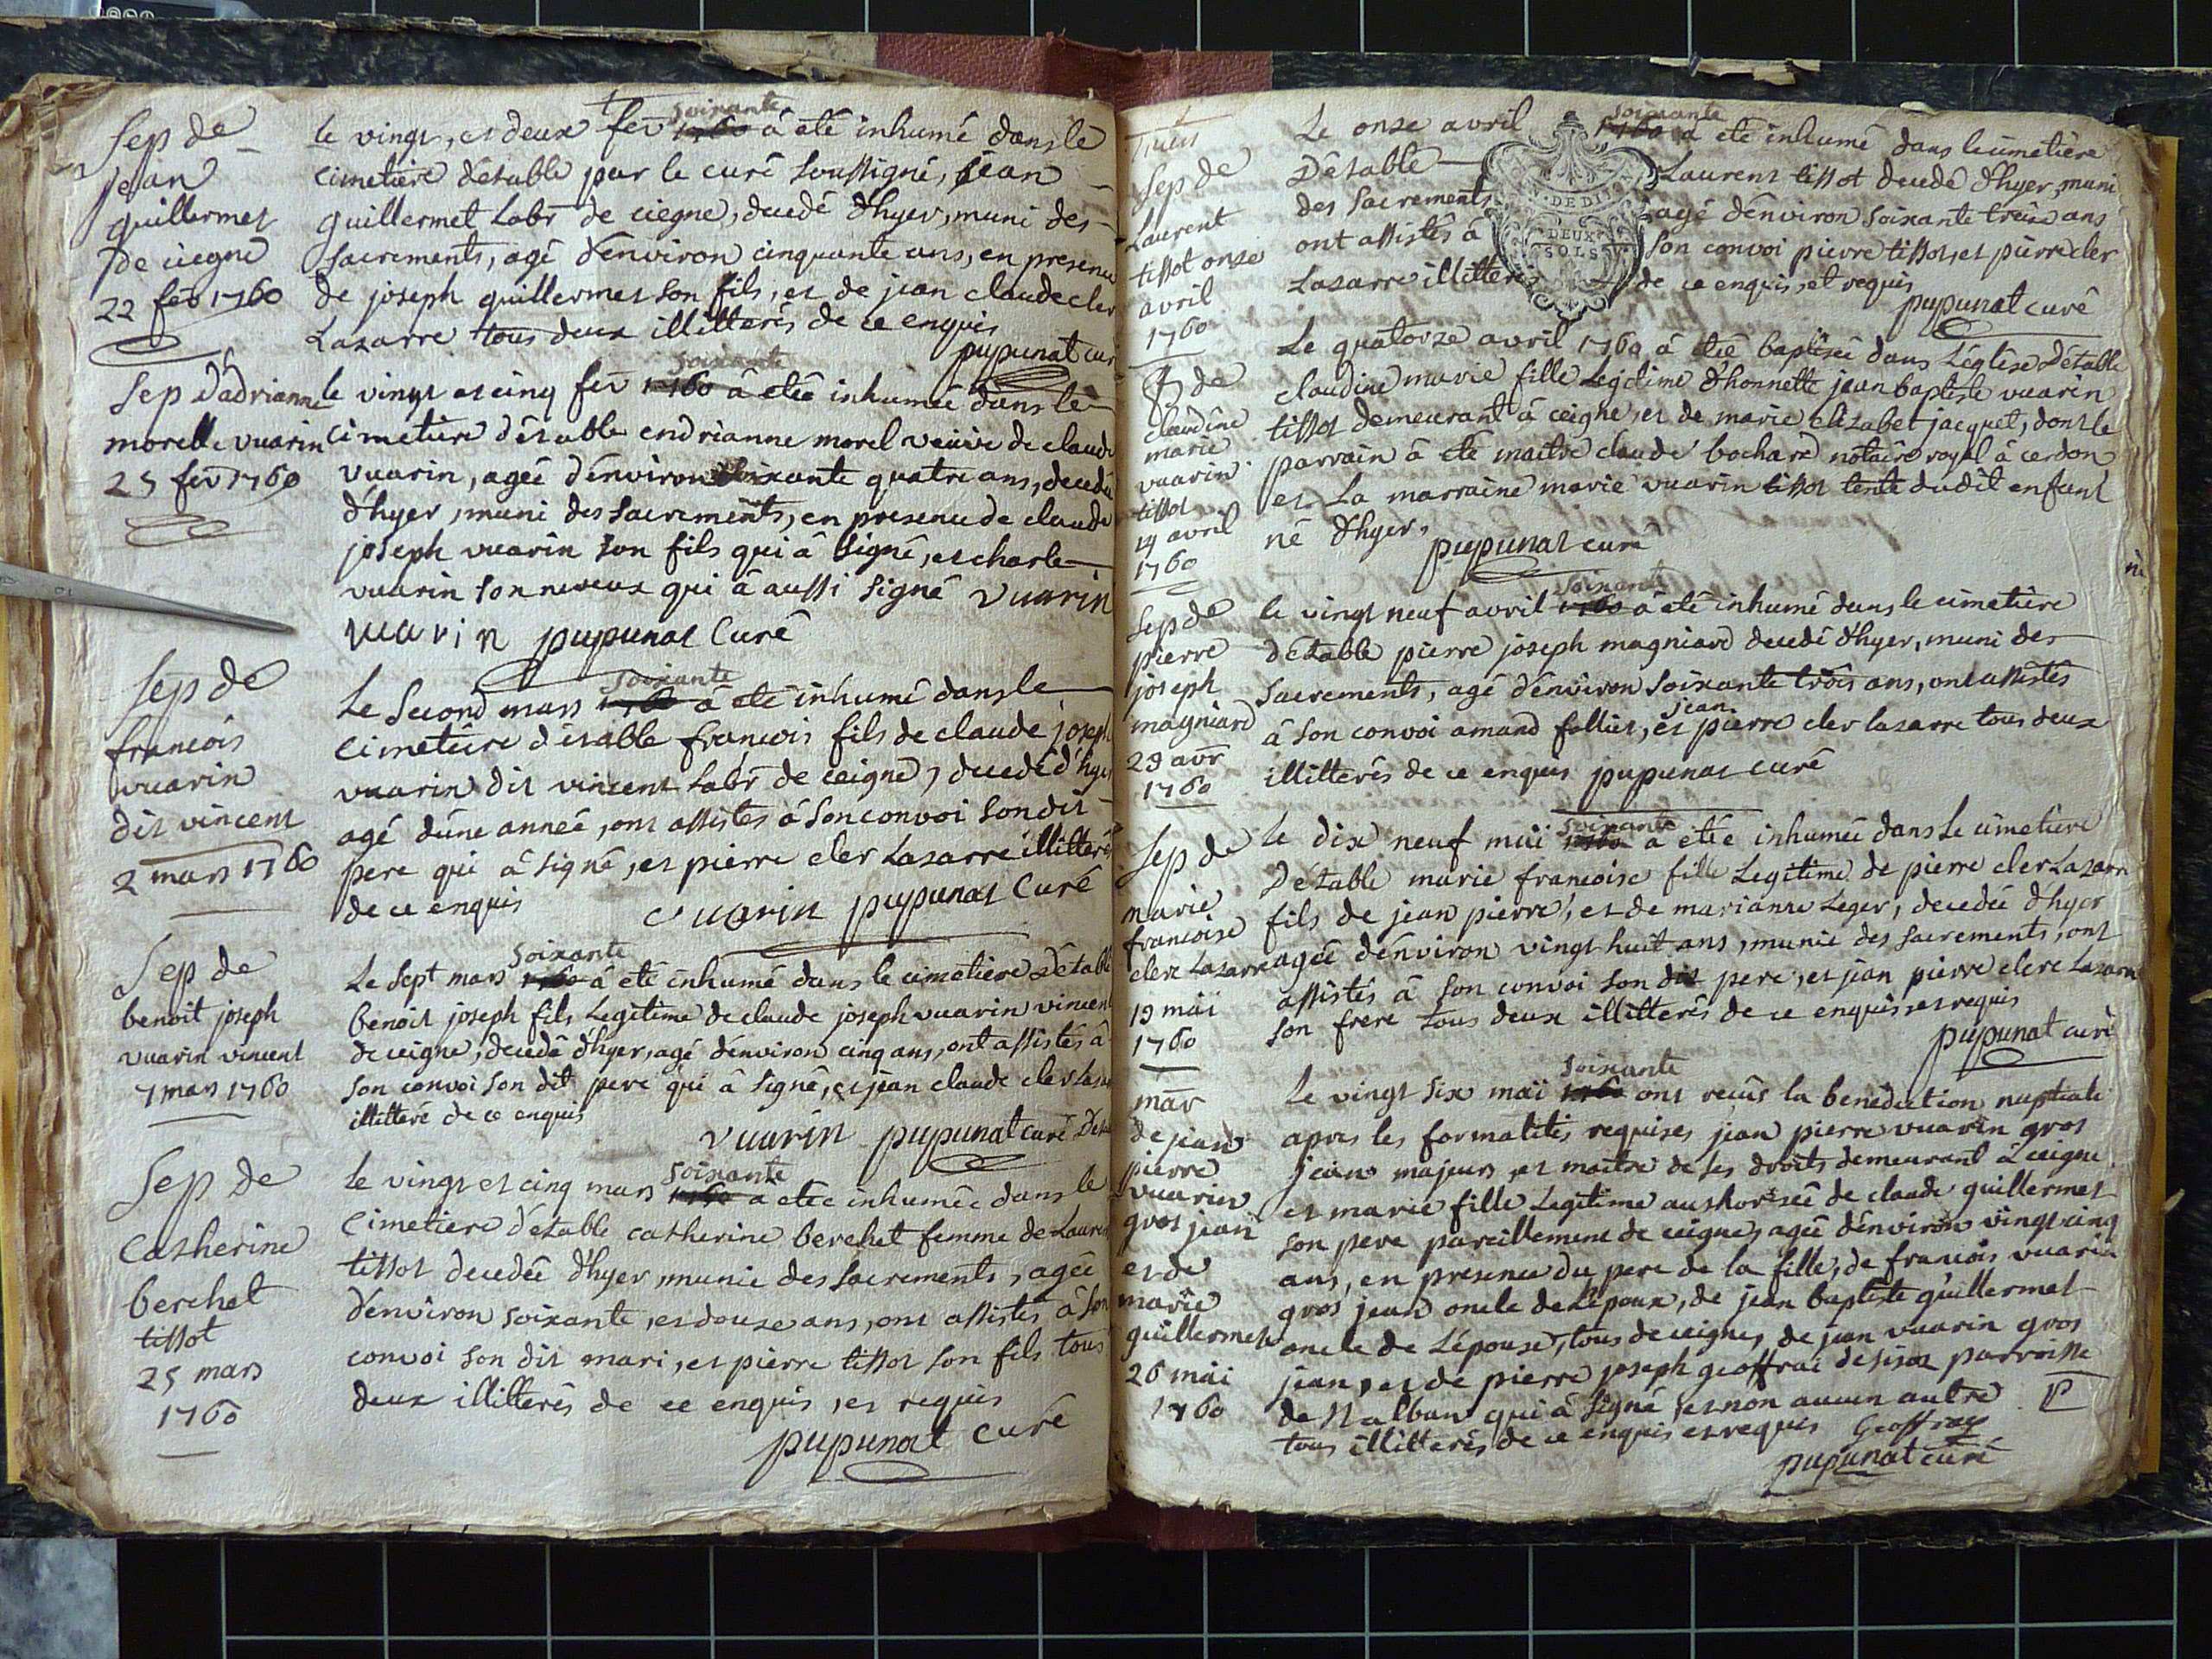 Sep de
jean
guillermet
de ciegne
22 fev 1760
le vingt, et deux fev 1760 soixante à eté inhumé dans le
cimetiere d'estable par le curé soussigné, jean
guillermet Labr de ciegne, decedé d'hyer, muni des
sacrements, agé d'environ cinquante ans, en presence
de joseph guillermet son fils, et de jean claude cler
Lazarre tous deux illitterés de ce enquis
pupunat cur
Sep d'adrianne
morelle vuarin
25 fev 1760
le vingt et cinq fev 1760 soixante à etée inhumée dans le
cimetiere d'estable endrianne morel veuve de claude
vuarin, agée d'environ soixante quatre ans, decedée
d'hyer, muni des sacrements, en presence de claude
joseph vuarin son fils qui à signé, et charle
vuarin son neveux qui à aussi signé vuarin
vuarin pupunat Curé
Sep de
francois
vuarin
dit vincent
2 mars 1760
Le second mars 1760 soixante à eté inhumé dans le
cimetiere d'estable francois fils de claude joseph
vuarin dit vincent Labr de ceigne, decedé d'hyer
agé d'une année, ont assistés à son convoi son dit
pere qui à signé, et pierre cler Lazarre illitterés
de ce enquis
vuarin pupunat Curé
Sep de
benoit joseph
vuarin vincent
7 mars 1760
Le sept mars 1760 soixante à eté inhumé dans le cimetiere d'etable
benoit joseph fils Legitime de claude joseph vuarin vincent
de ceigne, decedé d'hyer, agé d'environ cinq ans, ont assistés à
son convoi son dit pere qui à signé, et jean claude cler Lasar
illitteré de ce enquis
vuarin pupunat curé
Sep de
Catherine
berchet
tissot
25 mars
1760
le vingt et cinq mars 1760 soixante à etée inhumée dans le
Cimetiere d'etable catherine berchet femme de Laurent
tissot decedée d'hyer, munie des sacrements, agée
d'environ soixante, et douze ans, ont assistés à son
convoi son dit mari, et pierre tissot son fils tous
deux illitterés de ce enquis, et requis
pupunat curé
Sep de
Laurent
tissot onze
avril
1760
Le onze avril 1760 soixante à eté inhumé dans le cimetiere
D'estable Laurent tissot decedé d'hyer, muni
des sacrements agé d'environ soixante treize ans
ont assistés à son convoi pierre tissot, et pierre cler
Lazarre illitterés de ce enquis, et requis
pupunat curé
DE DIJON
DEUX
SOLS
B de
claudine
marie
vuarin
tissot
14 avril
1760
Le quatorze avril 1760 à etée baptisée dans L'église d'étable
claudine marie fille Legitime d'honnette jean baptiste vuarin
tissot demeurant à ceigne, et de marie elizabet jacquet, dont le
parrain à eté maitre claude bochard notaire royal à cerdon
et La marraine marie vuarin tissot tente dudit enfant
né d'hyer,
pupunat curé
Sep de
pierre
joseph
magniard
29 avr
1760
le vingt neuf avril 1760 soixante à eté inhumé dans le cimetiere
d'etable pierre joseph magniard decedé d'hyer, muni des
sacrements, agé d'environ soixante trois ans, ont assistés
à son convoi amand follier, et jean pierre cler lazarre tous deux
illitterés de ce enquis pupunat curé
Sep de
marie
francoise
clere Lazarre
19 mai
1760
Le dix neuf mai 1760 soixante à etée inhumée dans le cimetiere
D'étable marie francoise fille Legitime de pierre cler Lazarre
fils de jean pierre, et de marianne Leger, decedée d'hyer
agée d'environ vingt huit ans, munie des sacrements, ont
assistés à son convoi son dit pere, et jean pierre clere Lazarre
son frere tous deux illitterés de ce enquis et requis
pupunat curé
mar
de jean
pierre
vuarin
gros jean
et de
marie
guillermet
26 mai
1760
Le vingt six mai 1760 soixante ont recûs la benediction nuptiale
apres les formalités requises jean pierre vuarin gros
jean majeurs, et maitre de ses droits demeurant à ceigne
et marie fille Legitime authorisée de claude guillermet
son pere pareillement de ceigne, agée d'environ vingt cinq
ans, en presence du pere de la fille, de francois vuarin
gros jean oncle de L'époux, de jean baptiste guillermet
oncle de L'épouse, tous de ceigne, de jean vuarin gros
jean, et de pierre joseph geoffrai de parroisse
de St alban qui à signé, et non aucun autre
tous illitterés de ce enquis et requis Geoffray
pupunat curé